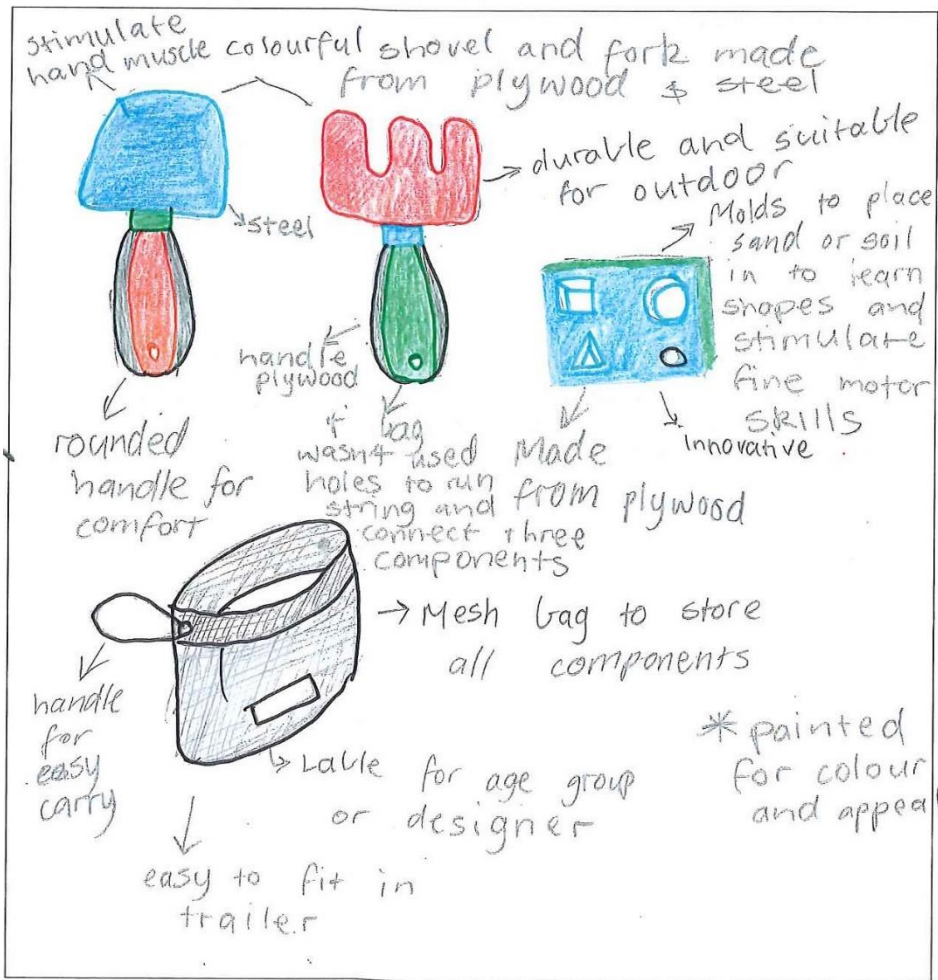 stimulate
hand muscle
colourful shovel and fork made
from plywood & steel
durable and suitable
for outdoor
steel
Molds to place
sand or soil
in to learn
shapes and
stimulate
fine motor
skills
handle
plywood
innovative
rounded
handle for
comfort
if bag
wasn't used
holes to run
string and
connect three
components
Made
from plywood
Mesh bag to store
all components
handle
for
easy
carry
Lable for age group
or designer
* painted
for colour
and appeal
easy to fit in
trailer